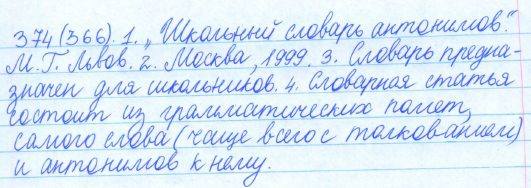 374(366). 1. „Школьный словарь антонимов".
М.Г. Львов. 2. Москва, 1999. 3. Словарь предна-
значен для школьников. 4. Словарная статья
состоит из грамматических помет,
самого слова (чаще всего с толкованием)
и антонимов к нему.